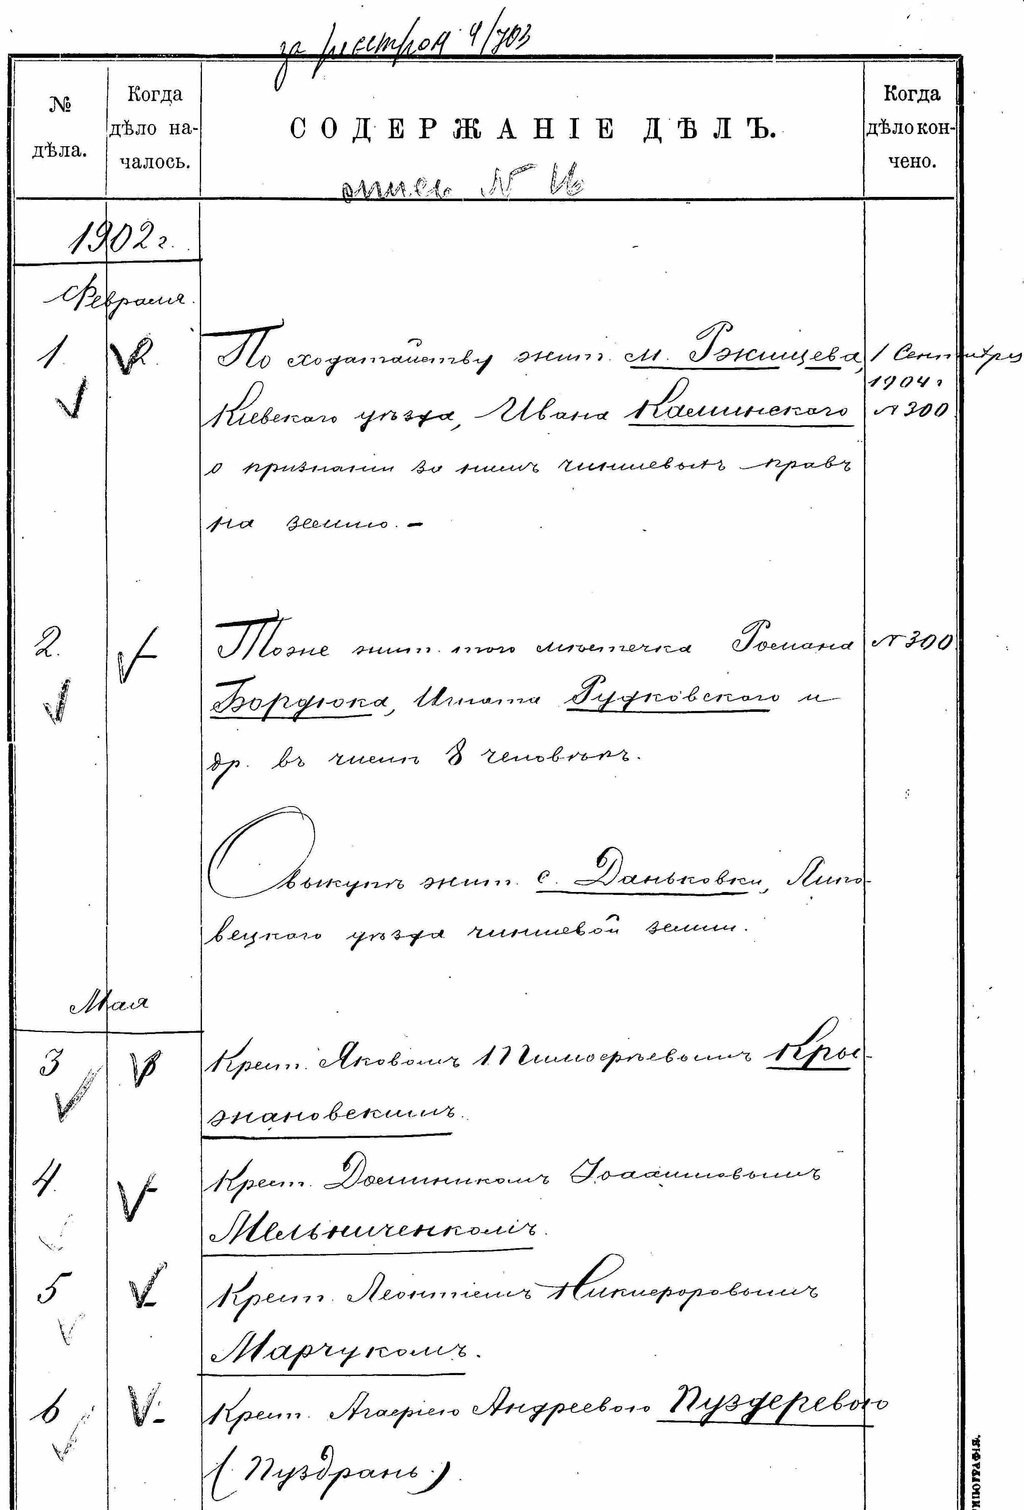 за реестром 9/703
№ дѣла.
Когда дѣло началось.
СОДЕРЖАНІЕ ДѢЛЪ.
Когда дѣло кончено.
опись №
1902 г.
Февраля.
1. 2. По ходатайству жит. м. Ржищева, 1 Сентября
1904 г
Кіевскаго уѣзда, Ивана Каминскаго № 300
о признаніи за нимъ чиншевыхъ правъ
на землю. –
2. – Тоже жит. того мѣстечка Романа № 300
Бордюка, Игната Рудковскаго и
др. въ числѣ 8 человѣкъ.
О выкупѣ жит. с. Даньковки, Липо-
вецкаго уѣзда чиншевой земли.
Мая
3 Крест. Яковомъ Тимофѣевымъ Кры-
жановскимъ.
4. – Крест. Доминикомъ Іоахимовымъ
Мельниченкомъ.
5 – Крест. Леонтіемъ Никифоровымъ
Марчукомъ.
6 – Крест. Агафіею Андреевою Пуздеревою
(Пуздрань.)
ТИПОГРАФІЯ.